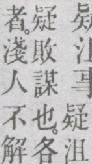 沮事疑沮
疑敗謀也。各
者。淺人不解